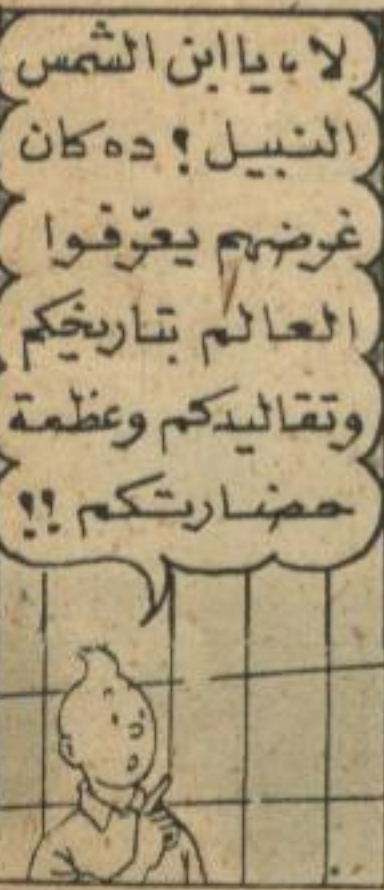 لا، يا ابن الشمس
النبيل ! ده كان
غرضهم يعرّفوا
العالم بتاريخكم
وتقاليدكم وعظمة
حضارتكم !!